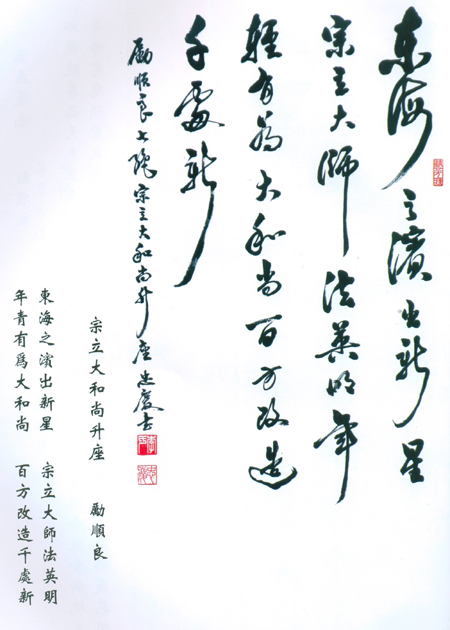 东海之濱出新星
宗立大師法英明年
輕有为大和尚百方改造
千處新
励順良 宗立大和尚升座
宗立大和尚升座 勵順良
東海之濱出新星 宗立大師法英明
年青有爲大和尚 百方改造千處新